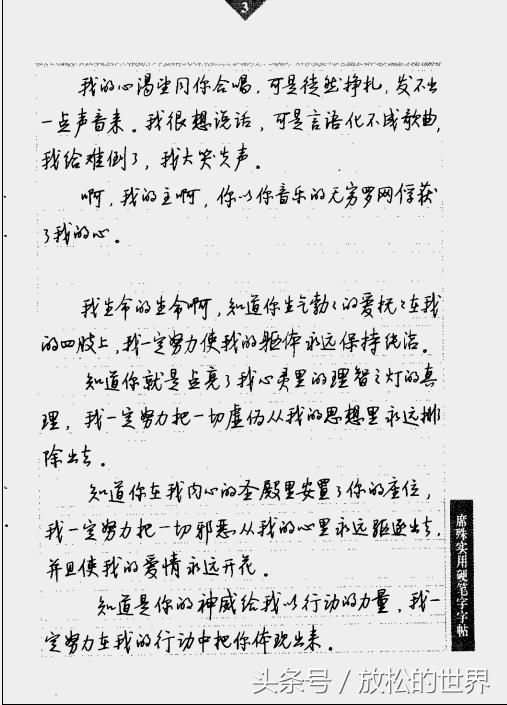 3
我的心渴望同你合唱，可是徒然挣扎，发不出
一点声音来。我很想说话，可是言语化不成歌曲，
我给难倒了，我大笑失声。
啊，我的主啊，你以你音乐的无穷罗网俘获
了我的心。
我生命的生命啊，知道你生气勃々的爱抚々在我
的四肢上，我一定努力使我的躯体永远保持纯洁。
知道你就是点亮了我心灵里的理智之灯的真
理，我一定努力把一切虚伪从我的思想里永远排
除出去。
知道你在我内心的圣殿里安置了你的座位，
我一定努力把一切邪恶从我的心里永远驱逐出去，
并且使我的爱情永远开花。
知道是你的神威给我以行动的力量，我一
定努力在我的行动中把你体现出来。
席殊实用硬笔字字帖
头条号 / 放松的世界